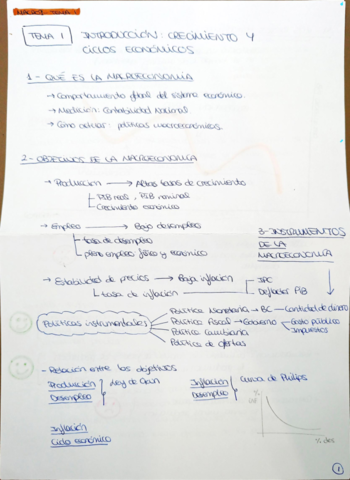 MACRO: TEMA 1
TEMA 1 INTRODUCCIÓN: CRECIMIENTO Y
CICLOS ECONÓMICOS
1- QUÉ ES LA MACROECONOMÍA
→ Comportamiento global del sistema económico.
→ Medición: Contabilidad Nacional
→ Cómo actuar: políticas macroeconómicas.
2- OBJETIVOS DE LA MACROECONOMÍA
→ Producción → Altas tasas de crecimiento
PIB real, PIB nominal
Crecimiento económico
→ Empleo → Bajo desempleo
tasa de desempleo
pleno empleo físico y económico
3- INSTRUMENTOS
DE LA
MACROECONOMÍA
→ Estabilidad de precios → Baja inflación
tasa de inflación
IPC
Deflactor PIB
Políticas instrumentales
Política Monetaria → BC → Cantidad de dinero
Política Fiscal → Gobierno
Gasto público
Impuestos
Política Cambiaria
Política de ofertas
- Relación entre los objetivos
Producción
Desempleo
Ley de Okun
Inflación
Desempleo
Curva de Philips
Inflación
Ciclo económico
1